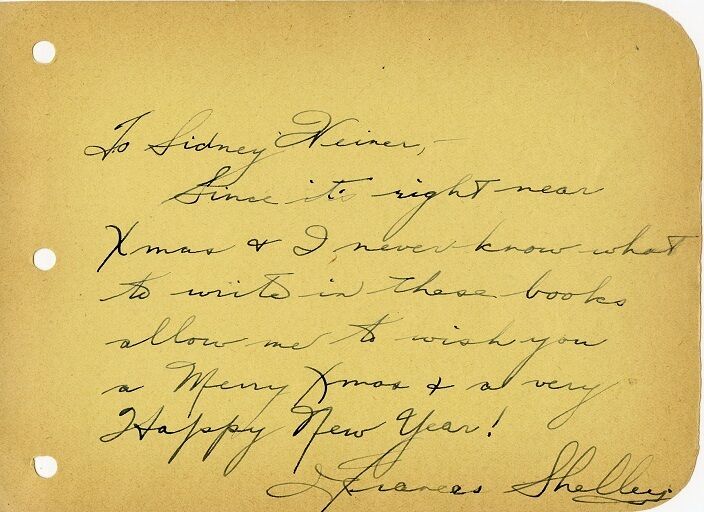 To Sidney Weiner, -
Since it's right near
Xmas & I never know what
to write in these books
allow me to wish you
a Merry Xmas & a very
Happy New Year!
Frances Shelley